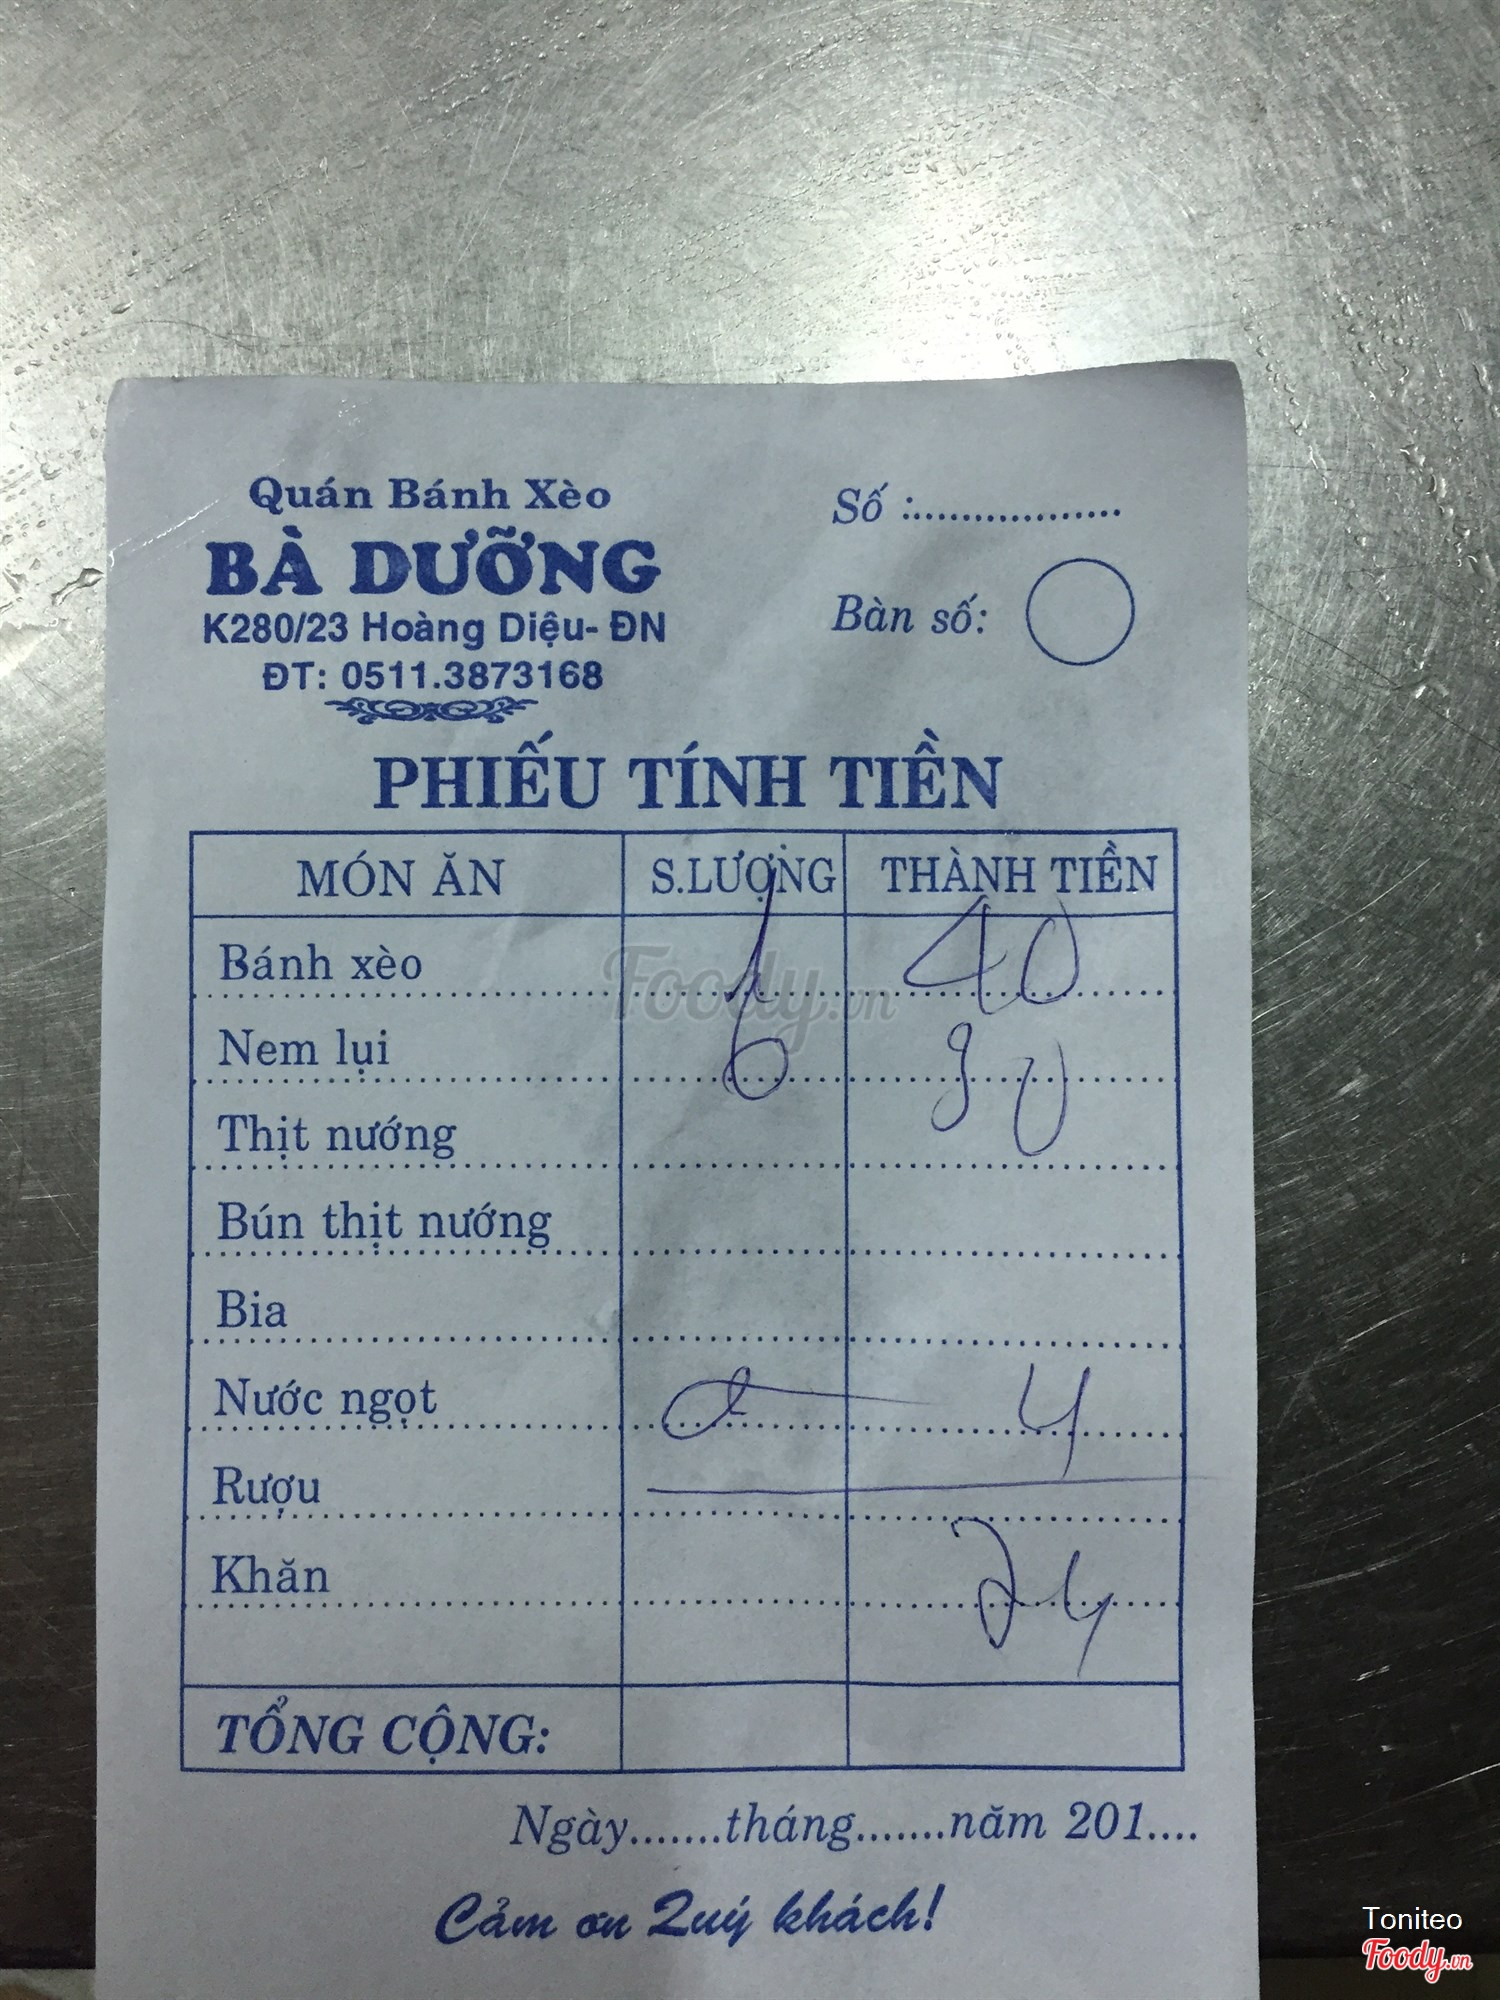 Quán Bánh Xèo
BÀ DƯỠNG
K280/23 Hoàng Diệu- ĐN
ĐT: 0511.3873168
Số :..................
Bàn số:
PHIẾU TÍNH TIỀN
MÓN ĂN S.LƯỢNG THÀNH TIỀN
Bánh xèo 1 40
Nem lụi 6 30
Thịt nướng
Bún thịt nướng
Bia
Nước ngọt 2 4
Rượu
Khăn 74
TỔNG CỘNG:
Ngày.......tháng.......năm 201....
Cảm ơn Quý khách!
Foody.vn
Toniteo
Foody.vn